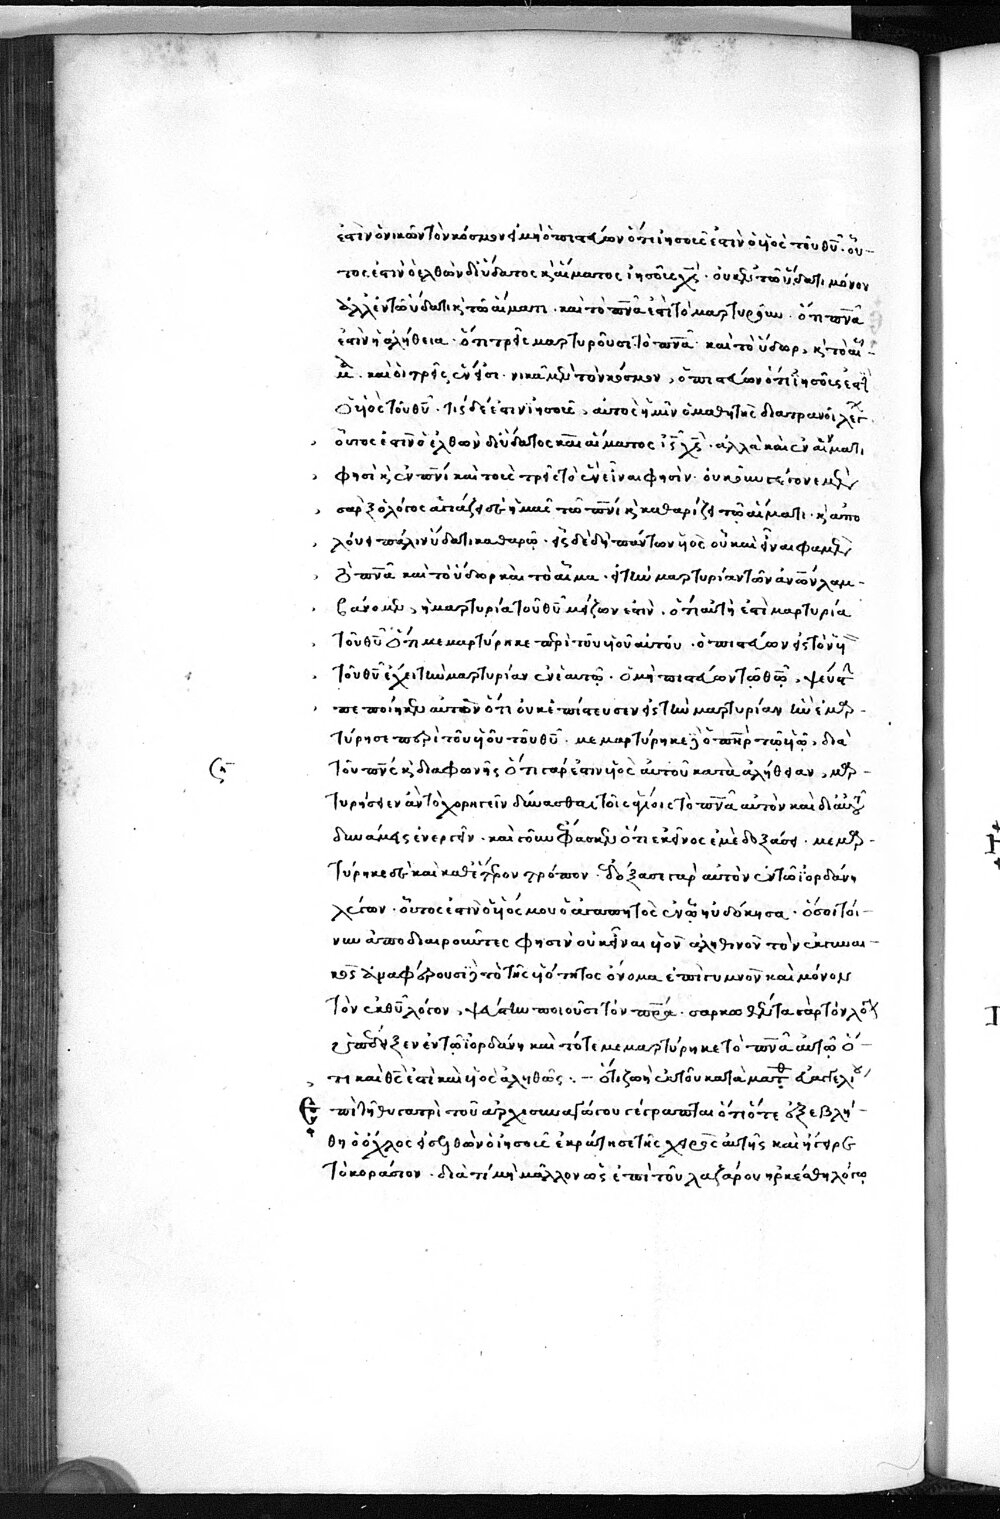 ἐστὶν ὁ νικῶν τὸν κόσμον εἰ μὴ ὁ πιστεύων ὅτι ἰησοῦς ἐστὶν ὁ υἱὸς τοῦ θυ̅. οὗ-
τος ἐστιν ὁ ἐλθὼν δι' ὕδατος κ̀ αἵματος ἰησοῦς χς̅. οὐκ ἐν τῶ ὕδατι μόνον
ἀλλ' ἐν τῶ ὕδατι κ̀ τῶ αἵματι. καὶ τὸ πνα̅ ἐστὶ τὸ μαρτυροῦν. ὅτι πνα̅
ἐστιν ἡ ἀλήθεια. ὅτι τρεῖς μαρτυροῦσι· τὸ πνα̅ καὶ τὸ ὕδωρ, κ̀ τὸ αἷ-
μα. καὶ οἱ τρεῖς ἕν εἰσι. νικᾶ μὲν τὸν κόσμον, ὁ πιστεύων ὅτι ἰησοῦς ἐστὶν
ὁ υἱὸς τοῦ θυ̅. τίς δέ ἐστιν ἰησοῦς, αὐτὸς ἡμῖν ὁ μαθητὴς διατρανοῖ λέγων.
οὗτος ἐστιν ὁ ἐλθὼν δι' ὕδατος καὶ αἵματος ις̅ χς̅. ἀλλὰ καὶ ἐν αἵματι
φησὶ κ̀ ἐν πνι̅ καὶ τοὺς τρεῖς τὸ ἓν εἶναι φησὶν. οὐκοῦν γέγονε μὲν
σὰρξ ὁ λόγος ἁγιάζει δὲ ἡμᾶς τῶ πνι̅ κ̀ καθαρίζει τῶ αἵματι. κ̀ ἀπο
λούει πάλιν ὕδατι καθαρῶ. εἷς δὲ δὴ πάντων υἱὸς οὗ καὶ εἶναι φαμὲν
τὸ πνα̅ καὶ τὸ ὕδωρ καὶ τὸ αἷμα. εἰ τὴν μαρτυρίαν τῶν ανω̅ν λαμ-
βάνομεν, ἡ μαρτυρία τοῦ θυ̅ μείζων ἐστὶν. ὅτι αὕτη ἐστὶ μαρτυρία
τοῦ θυ̅ ὅτι μεμαρτύρηκε περὶ τοῦ υἱοῦ αὐτοῦ. ὁ πιστεύων εἰς τὸν υἱὸν
τοῦ θυ̅ ἔχει τὴν μαρτυρίαν ἐν ἑαυτῶ. ὁ μὴ πιστεύων τῶ θω̅, ψεύστην
πεποίηκεν αὐτὸν ὅτι οὐκ ἐπίστευσεν εἰς τὴν μαρτυρίαν ἣν ἐμαρ-
τύρησε περὶ τοῦ υἱοῦ τοῦ θυ̅. μεμαρτύρηκε γὰρ ὁ πηρ̅ τῶ υἱῶ, διὰ
τοῦ πνς̅ κ̀ διαφωνῆς ὅτι γάρ ἐστιν υἱὸς αὐτοῦ κατὰ ἀλήθειαν, μαρ-
τυρήσειεν ἂν τὸ χορηγεῖν δύνασθαι τοῖς ἁγίοις τὸ πνα̅ αὐτὸν καὶ δι' αὐτοῦ
δυνάμεις ἐνεργεῖν. καὶ γοῦν ἔφασκεν ὅτι ἐκεῖνος ἐμὲ δοξάσει. μεμαρ-
τύρηκε δὲ καὶ καθ' ἕτερον τρόπον. δοξάσει γὰρ αὐτὸν ἐν τῶ ἰορδάνη
λέγων. οὗτος ἐστιν ὁ υἱός μου ὁ ἀγαπητὸς ἐν ὧ ηὐδόκησα. ὅσοι τοί-
νυν ἀποδιαιροῦντες φησὶν οὐκ εἶναι υἱὸν ἀληθινὸν τὸν ἐκ γυναι-
κὸς ἀναφέρουσι γὰρ τὸ τῆς υἱότητος ὄνομα ἐπὶ γυμνὸν καὶ μόνον
τὸν ἐκ θυ̅ λόγον, ψεύστην ποιοῦσι τὸν πρα̅. σαρκωθέντα γὰρ τὸν λόγον
ὑπέδειξεν ἐν τῶ ἰορδάνη καὶ τότε μεμαρτύρηκε τὸ πνα̅ αὐτῶ ὅ-
τι καὶ θς̅ ἐστὶ καὶ υἱὸς ἀληθῶς :– ὅτι ζωὴ ἐκ τοῦ κατὰ ματθ εὐαγγελίου,
ἐπὶ τῆ θυγατρὶ τοῦ ἀρχισυναγώγου γέγραπται ὅτι ὅτε ἐξεβλή-
θη ὁ ὄχλος εἰσελθὼν ὁ ἰησοῦς ἐκράτησε τῆς χειρὸς αὐτῆς καὶ ἤγειρε
τὸ κοράσιον. διὰ τί μὴ μᾶλλον ὡς ἐπὶ τοῦ λαζάρου ἠρκέσθη λόγω